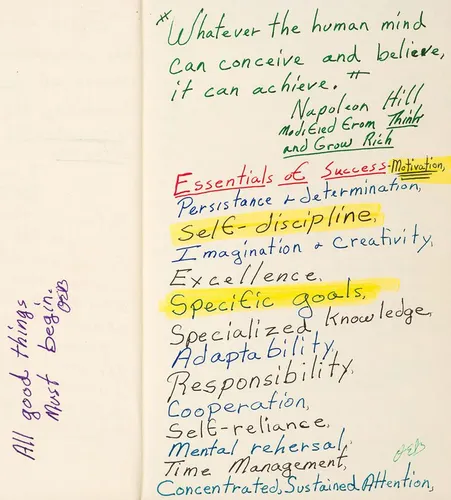 All good things
Must begin.
OEB
"Whatever the human mind
can conceive and believe,
it can achieve."
Napoleon Hill
Modified from Think
and Grow Rich
Essentials of Success-Motivation,
Persistance + determination,
Self-discipline,
Imagination + Creativity,
Excellence,
Specific goals,
Specialized knowledge,
Adaptability,
Responsibility,
Cooperation,
Self-reliance,
Mental rehersal,
OEB
Time Management,
Concentrated, Sustained Attention,